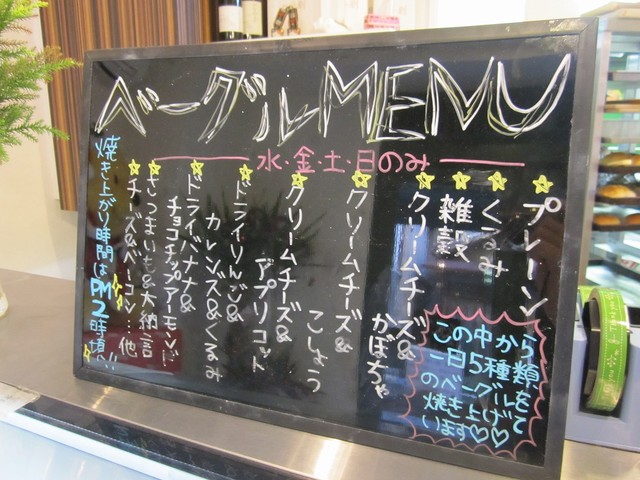 ベーグルMENU
水・金・土・日のみ
プレーン
くるみ
雑穀
クリームチーズ&
かぼちゃ
クリームチーズ&
こしょう
クリームチーズ&
アプリコット
ドライりんご&
カレンズ&くるみ
ドライバナナ&
チョコチップアーモンド
さつまいも&大納言
チーズ&ベーコン…他
焼き上がり時間は
PM2時頃!!
この中から
一日5種類
のベーグルを
焼き上げて
います♡♡